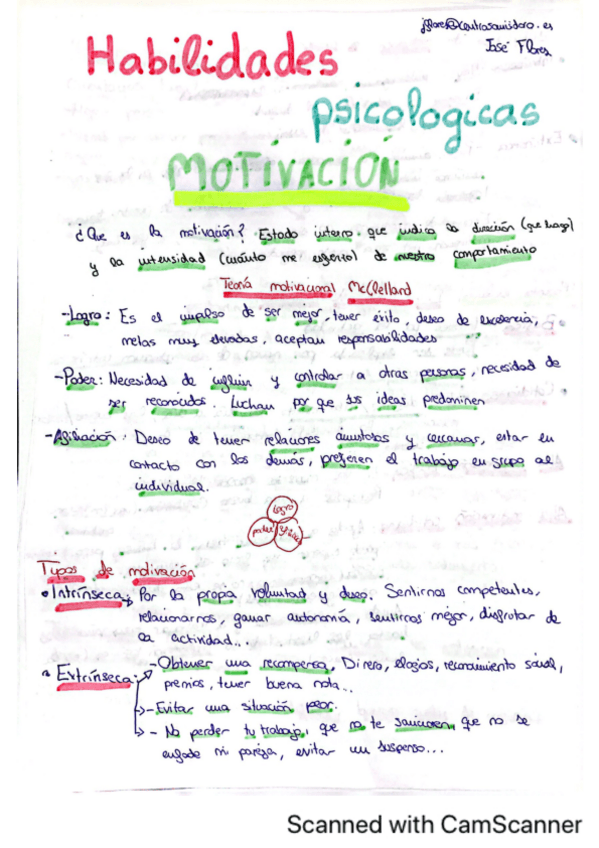 José Flores
Habilidades
psicologicas
MOTIVACIÓN
¿Que es la motivación? Estado interno que indica la dirección (que hago)
y la intensidad (cuánto me esfuerzo) de nuestro comportamiento
Teoría motivacional McClelland
-Logro: Es el impulso de ser mejor, tener éxito, deseo de excelencia,
metas muy elevadas, aceptan responsabilidades
-Poder: Necesidad de influir y controlar a otras personas, necesidad de
ser reconocidos. Luchan por que sus ideas predominen
-Afiliación: Deseo de tener relaciones amistosas y cercanas, estar en
contacto con los demás, prefieren el trabajo en grupo al
individual.
logro
poder
Tipos de motivación
• Intrínseca: Por la propia voluntad y deseo. Sentirnos competentes,
relacionarnos, ganar autonomía, sentirnos mejor, disfrutar de
la actividad...
• Extrínseca: -Obtener una recompensa, Dinero, elogios, reconocimiento social,
premios, tener buena nota...
- Evitar una situación peor.
- No perder tu trabajo, que no te sancionen, que no se
enfade mi pareja, evitar un suspenso...
Scanned with CamScanner